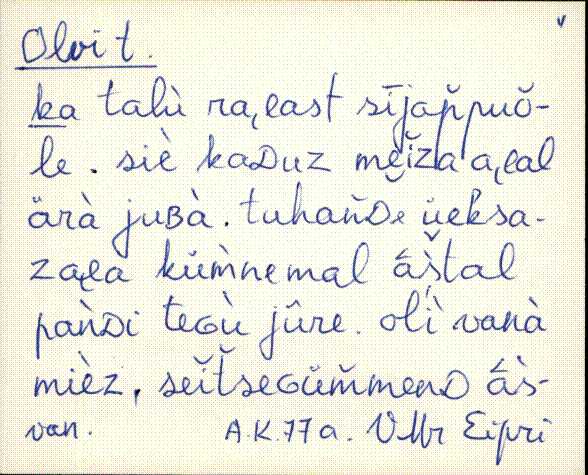 Olvi t.
ka talù ra˛east sījap̆puŏ-
le. siè kaᴅuz mĕĭza a˛eal
ärà juʙà. tuhañᴅe üeksa-
za˛ea kŭm̀nemal áš̀tal
pañᴅi teɢù jûre. olì vanà
mièz, seĭt̆seɢŭm̆menᴅ ás̀-
van.
A.K. 77 a. VMr Eipri